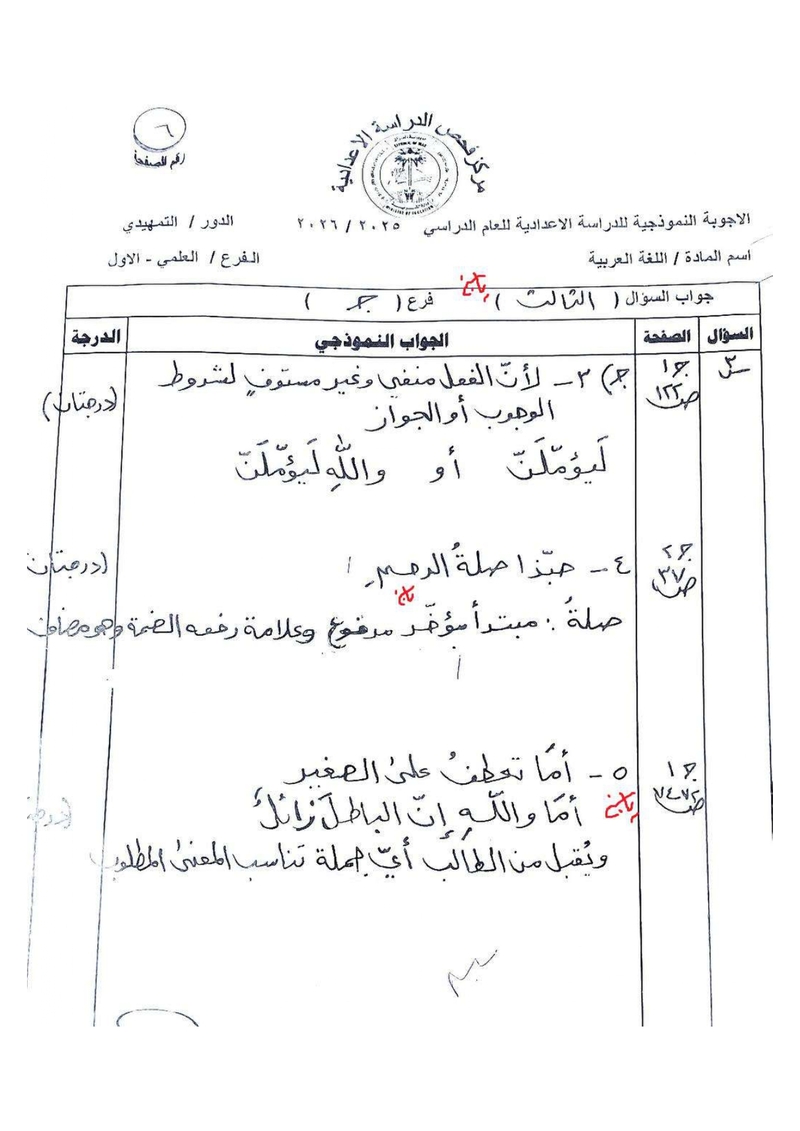 ٦
رقم الصفحة
مركز فحص الدراسة الاعدادية
الاجوبة النموذجية للدراسة الاعدادية للعام الدراسي ٢٠٢٥ / ٢٠٢٦ الدور / التمهيدي
اسم المادة / اللغة العربية الفرع / العلمي - الاول
جواب السؤال ( الثالث ) فرع ( جـ )
السؤال الصفحة الجواب النموذجي الدرجة
س٣ ج١ ص١٢٢ جـ) ٣- لأنّ الفعل منفي وغير مستوفٍ لشروط (درجتان)
الوجوب أو الجواز
لَيؤمّلَنّ أو واللهِ لَيؤمّلَنّ
ج٢ ص٣٧ ٤- حبّذا صلةُ الرحمِ (درجتان
صلةُ : مبتدأ مؤخّر مرفوع وعلامة رفعه الضمة وهو مضاف
ج١ ٥- أمَا تعطفُ على الصغير
أمَا واللهِ إنّ الباطلَ زائلٌ
ويُقبل من الطالب أيّ جملة تناسب المعنى المطلوب